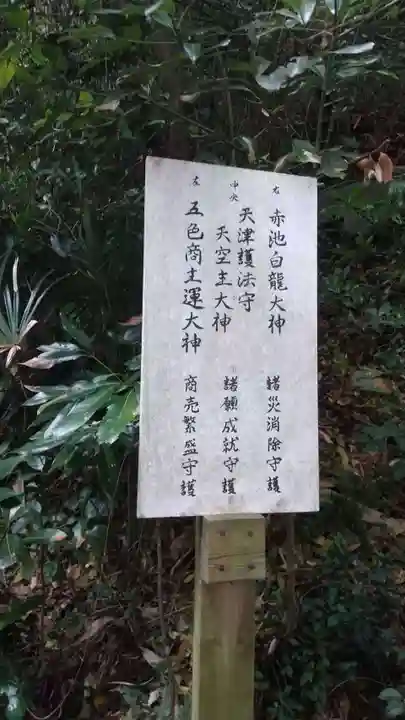 右 赤池白龍大神 諸災消除守護
中央 天津護法守
天空主大神 諸願成就守護
左 五色商主運大神 商売繁盛守護